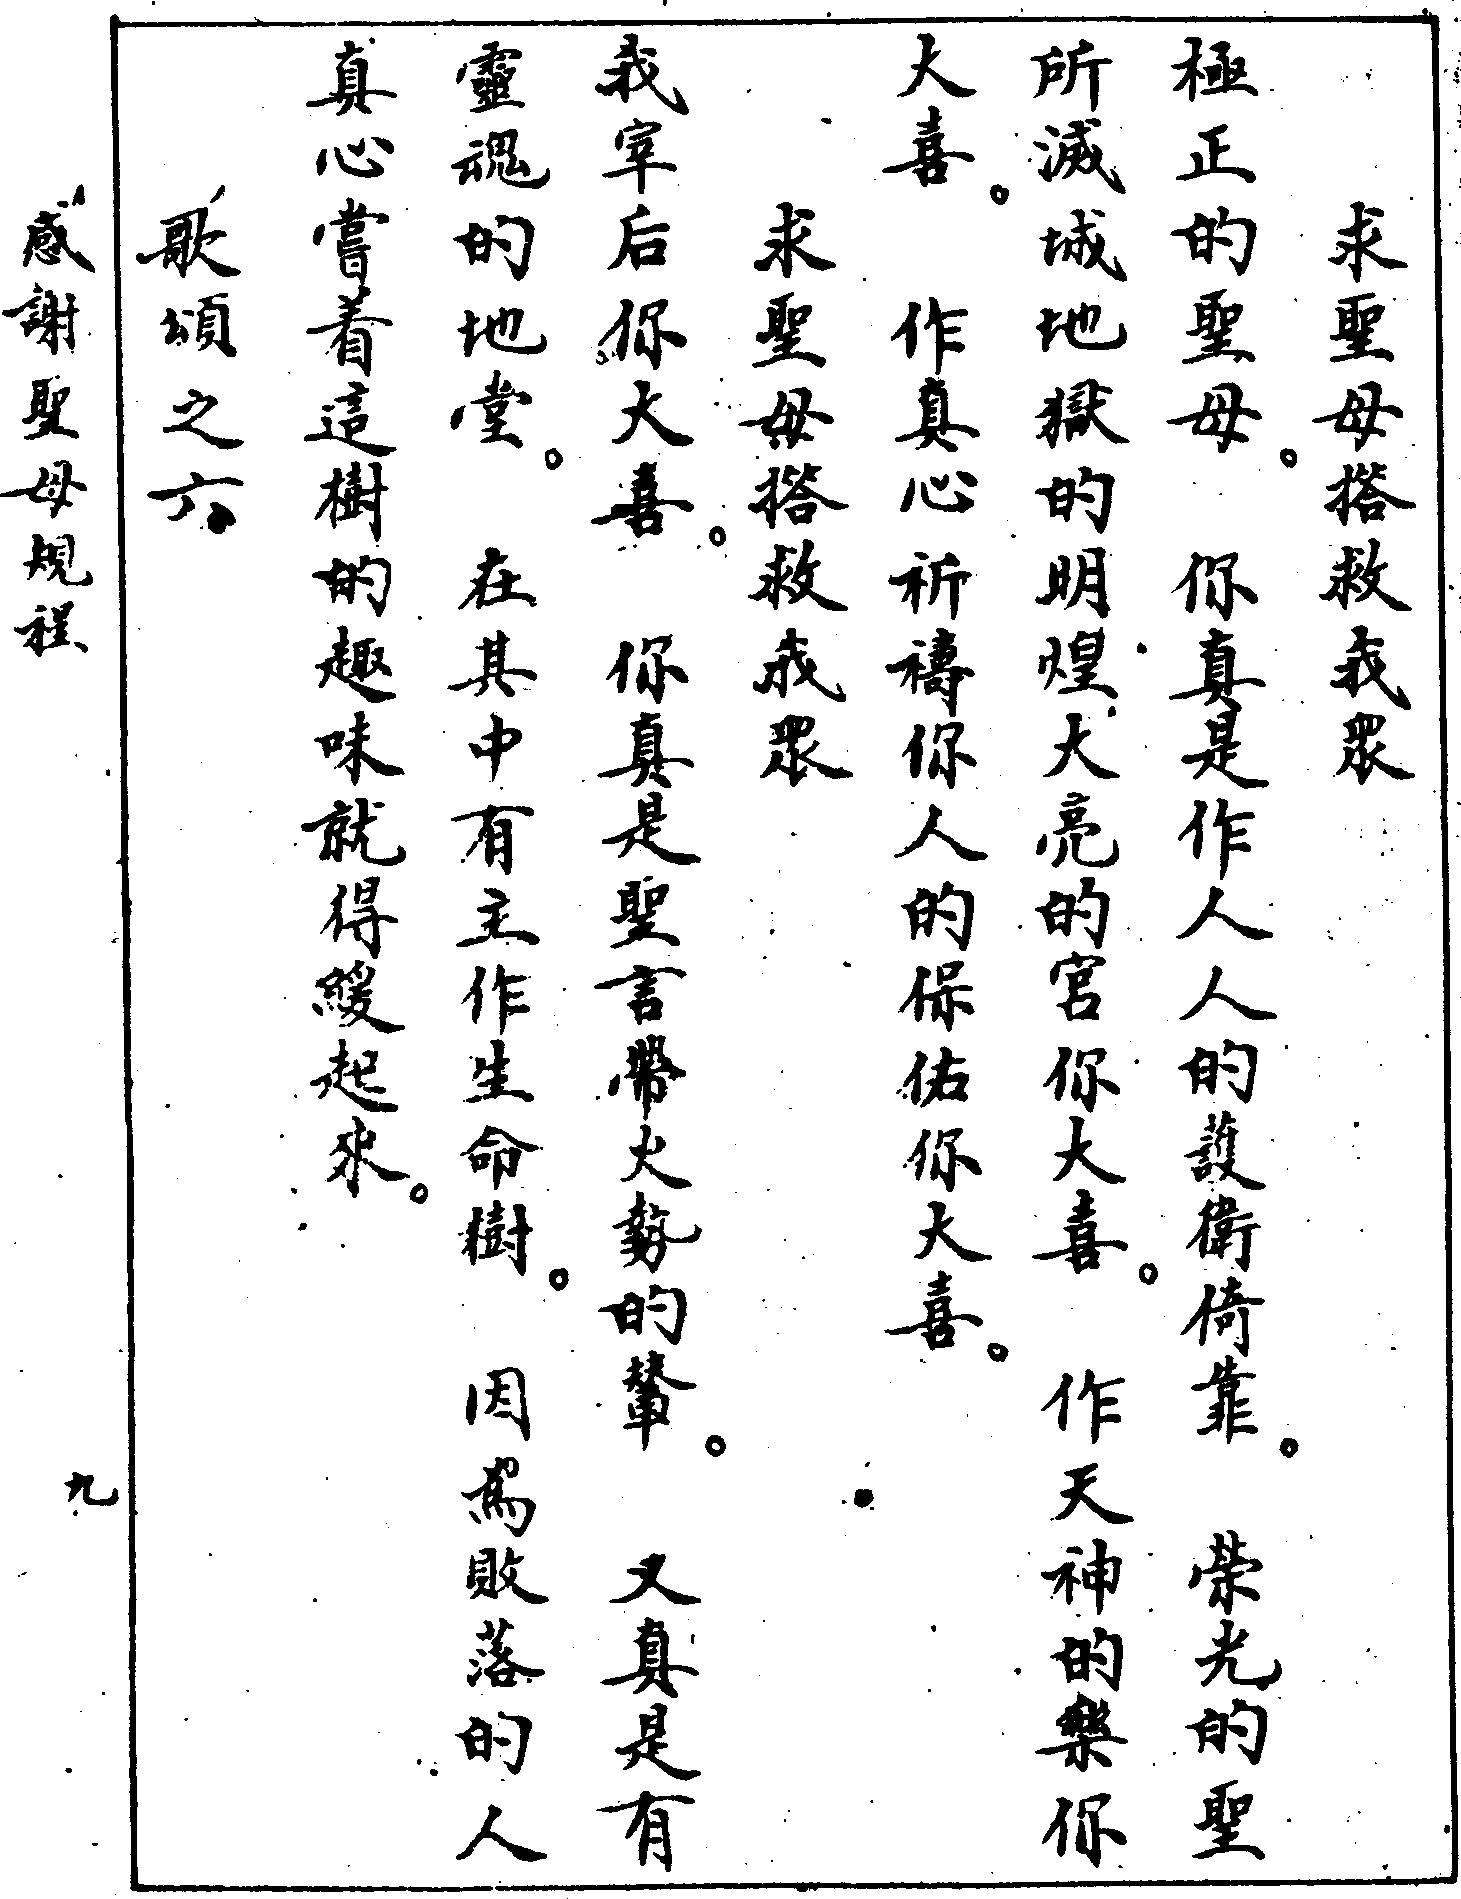 求聖母搭救我眾
極正的聖母。你真是作人人的護衛倚靠。榮光的聖
所滅城地獄的明煌大亮的宮你大喜。作天神的樂你
大喜。作真心祈禱你人的保佑你大喜。
求聖母搭救我眾
我宰后你大喜。你真是聖言帶火勢的輦。又真是有
靈魂的地堂。在其中有主作生命樹。因為敗落的人
真心嘗着這樹的趣味就得緩起來。
歌頌之六
感謝聖母規程
九